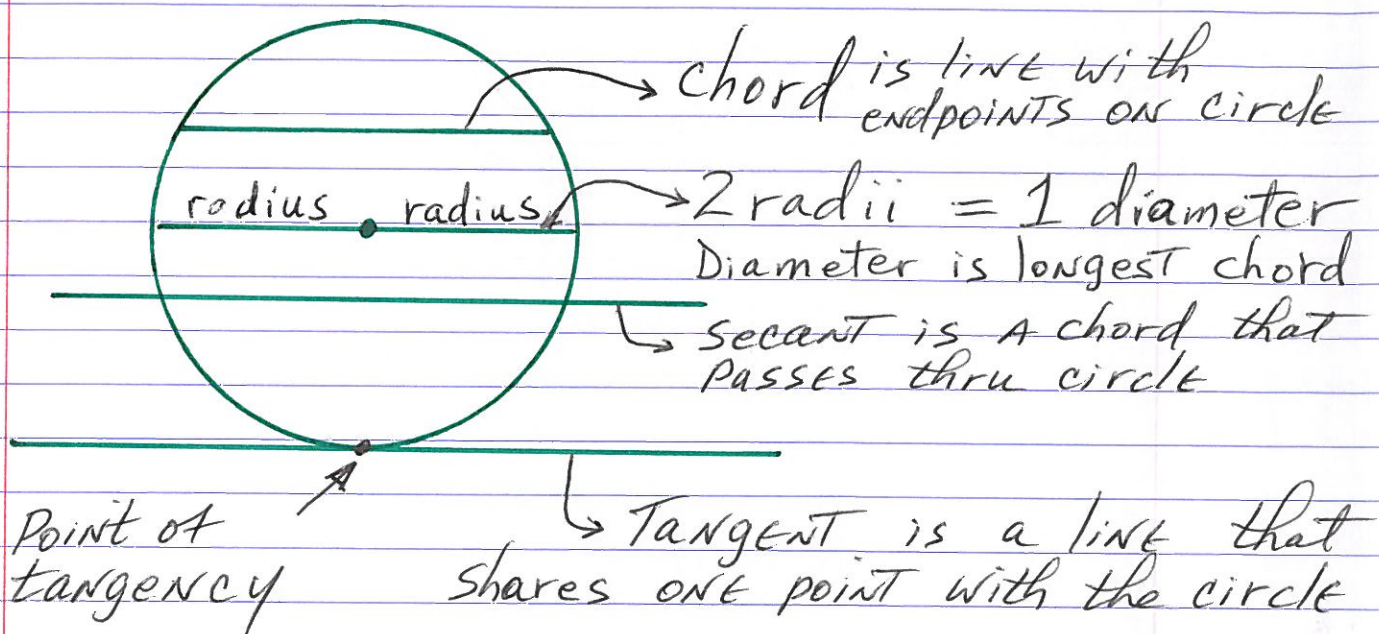 chord is line with
endpoints on circle
rodius radius
2 radii = 1 diameter
Diameter is longest chord
secant is A chord that
passes thru circle
Point of
tangency
Tangent is a line that
shares one point with the circle